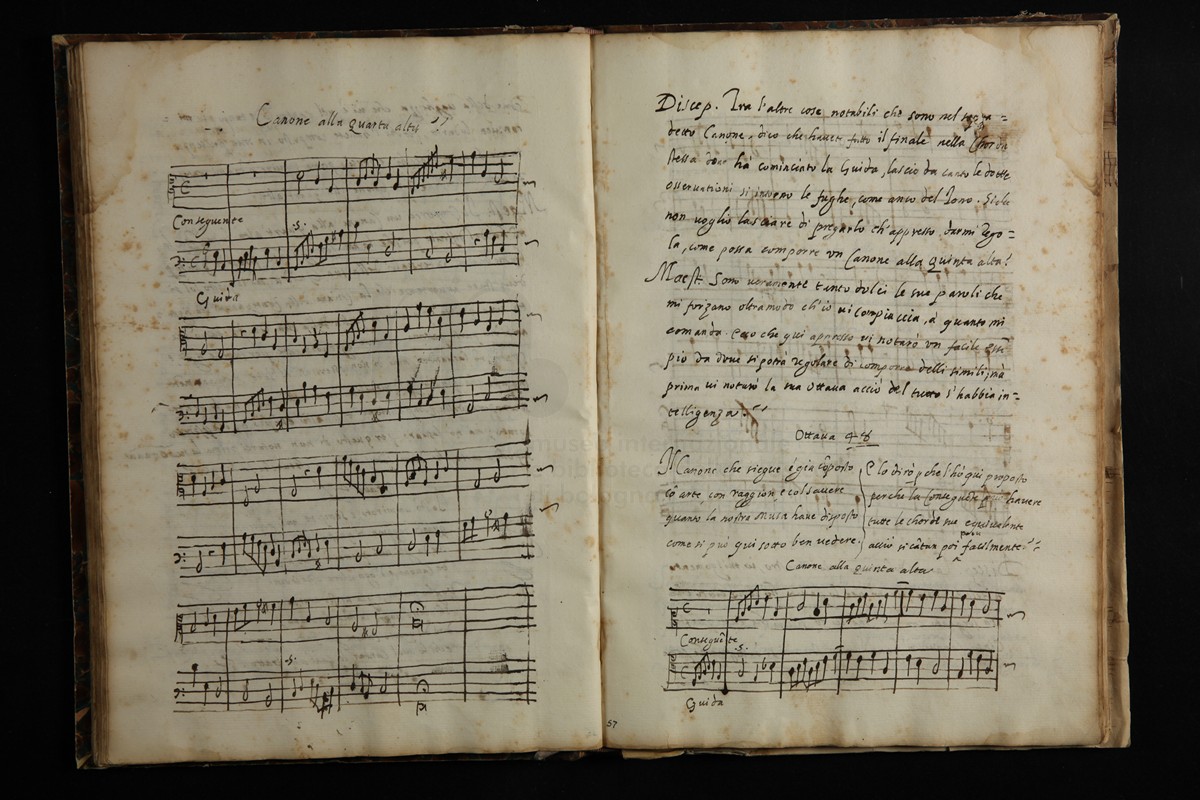 Canone alla quarta alta
Conseguente
.5.
Guida
.5.
57
Discep. Tra l'altre cose notabili che sono nel sopra=
detto Canone, dico che havete fatto il finale nella Chorda
stessa dove ha cominciato la Guida, lascio da canto le dotte
osservationi si intorno le fughe, come anco del Tono.
non voglio lasciare di pregarlo ch'appresso darmi rego=
la, come possa comporre un Canone alla quinta alta?
Maest. Sono veramente tanto dolci le sue paroli che
mi forzano oltramodo ch'io vi compiaccia, à quanto mi
comanda. Ecco che qui appresso vi notarò un facile essē
pio da dove si potrà regolare di comporre delli simili, mà
prima vi notarò la sua ottava acciò del tutto s'habbia in=
telligenza.
Ottava 48
Il Canone che siegue é gia cōposto
cō arte, con raggion e col sapere
quanto la nostra Musa have disposto
come si può qui sotto ben vedere.
E lo dirò che l'hò qui proposto
perche la Conseguēte havere
tutte le chorde sue equivalente
acciò si cātan poi facilmente
Canone alla quinta alta
Conseguēte
.5.
Guida